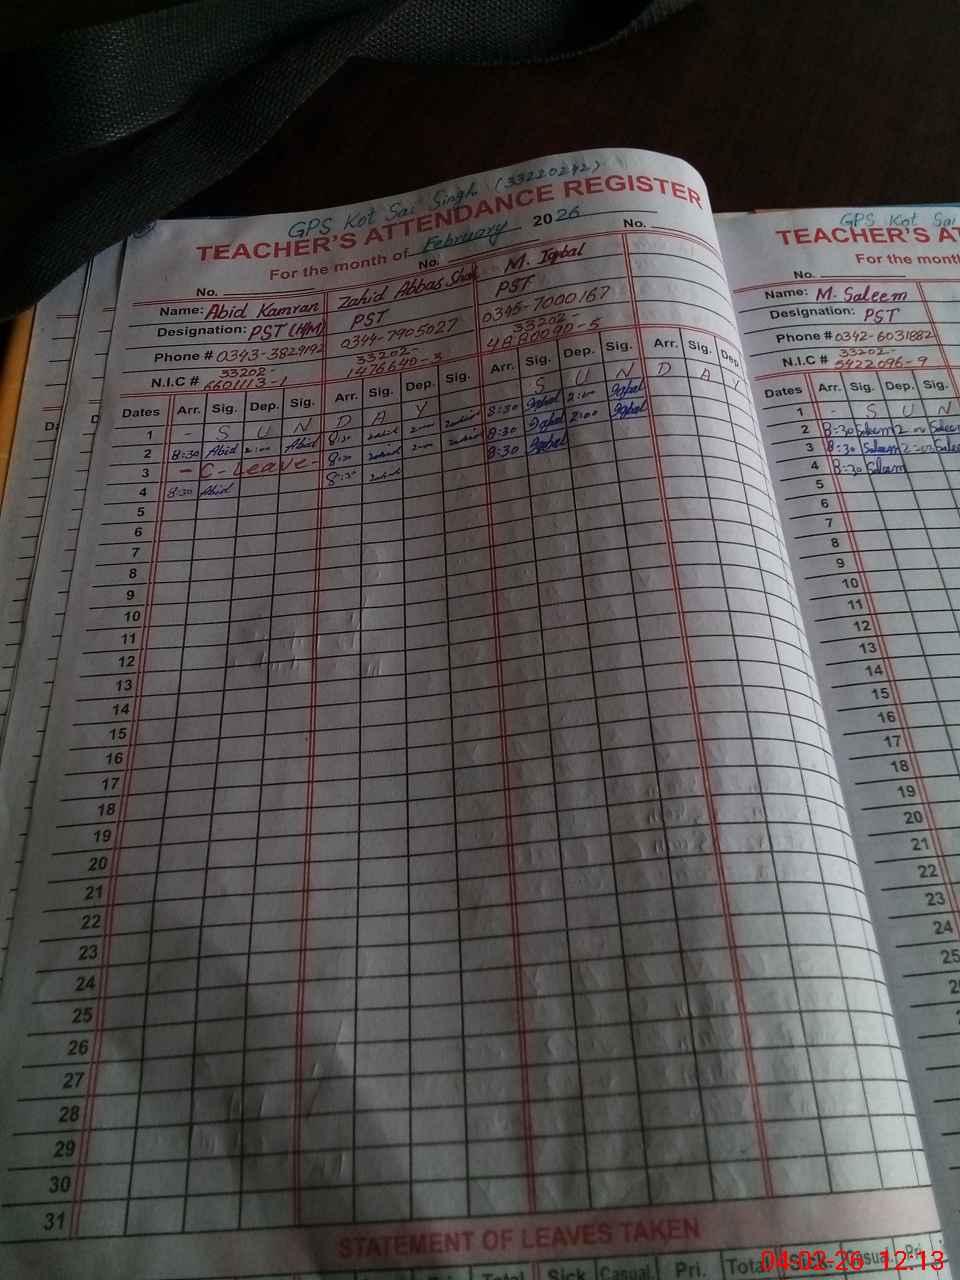 GPS Kot Sai Singh (33220242)
TEACHER'S ATTENDANCE REGISTER
For the month of February 2026
No. No. No.
Name: Abid Kamran Zahid Abbas Shah M. Iqbal
Designation: PST (H/M) PST PST
Phone # 0343-3829192 0344-7905027 0345-7000167
N.I.C # 33202-6601113-1 33202-1476640-3 33202-4880090-5
Dates Arr. Sig. Dep. Sig. Arr. Sig. Dep. Sig. Arr. Sig. Dep. Sig. Arr. Sig. Dep.
1 S U N D A Y S U N D A Y
2 8:30 Abid 2:00 Abid 8:30 zahid 2:00 zahid 8:30 Iqbal 2:00 Iqbal
3 - C-Leave - 8:30 zahid 2:00 zahid 8:30 Iqbal 2:00 Iqbal
4 8:30 Abid 8:30 zahid 8:30 Iqbal
5
6
7
8
9
10
11
12
13
14
15
16
17
18
19
20
21
22
23
24
25
26
27
28
29
30
31
STATEMENT OF LEAVES TAKEN
Total Sick Casual Pri. Total Sick Casual Pri.
GPS Kot Sai
TEACHER'S AT
For the month
No.
Name: M. Saleem
Designation: PST
Phone # 0342-6031882
N.I.C # 33202-5422096-9
Dates Arr. Sig. Dep. Sig.
1 - S U N
2 8:30 Saleem 2:00 Saleem
3 8:30 Saleem 2:00 Saleem
4 8:30 Saleem
5
6
7
8
9
10
11
12
13
14
15
16
17
18
19
20
21
22
23
24
25
04-02-26 12:13